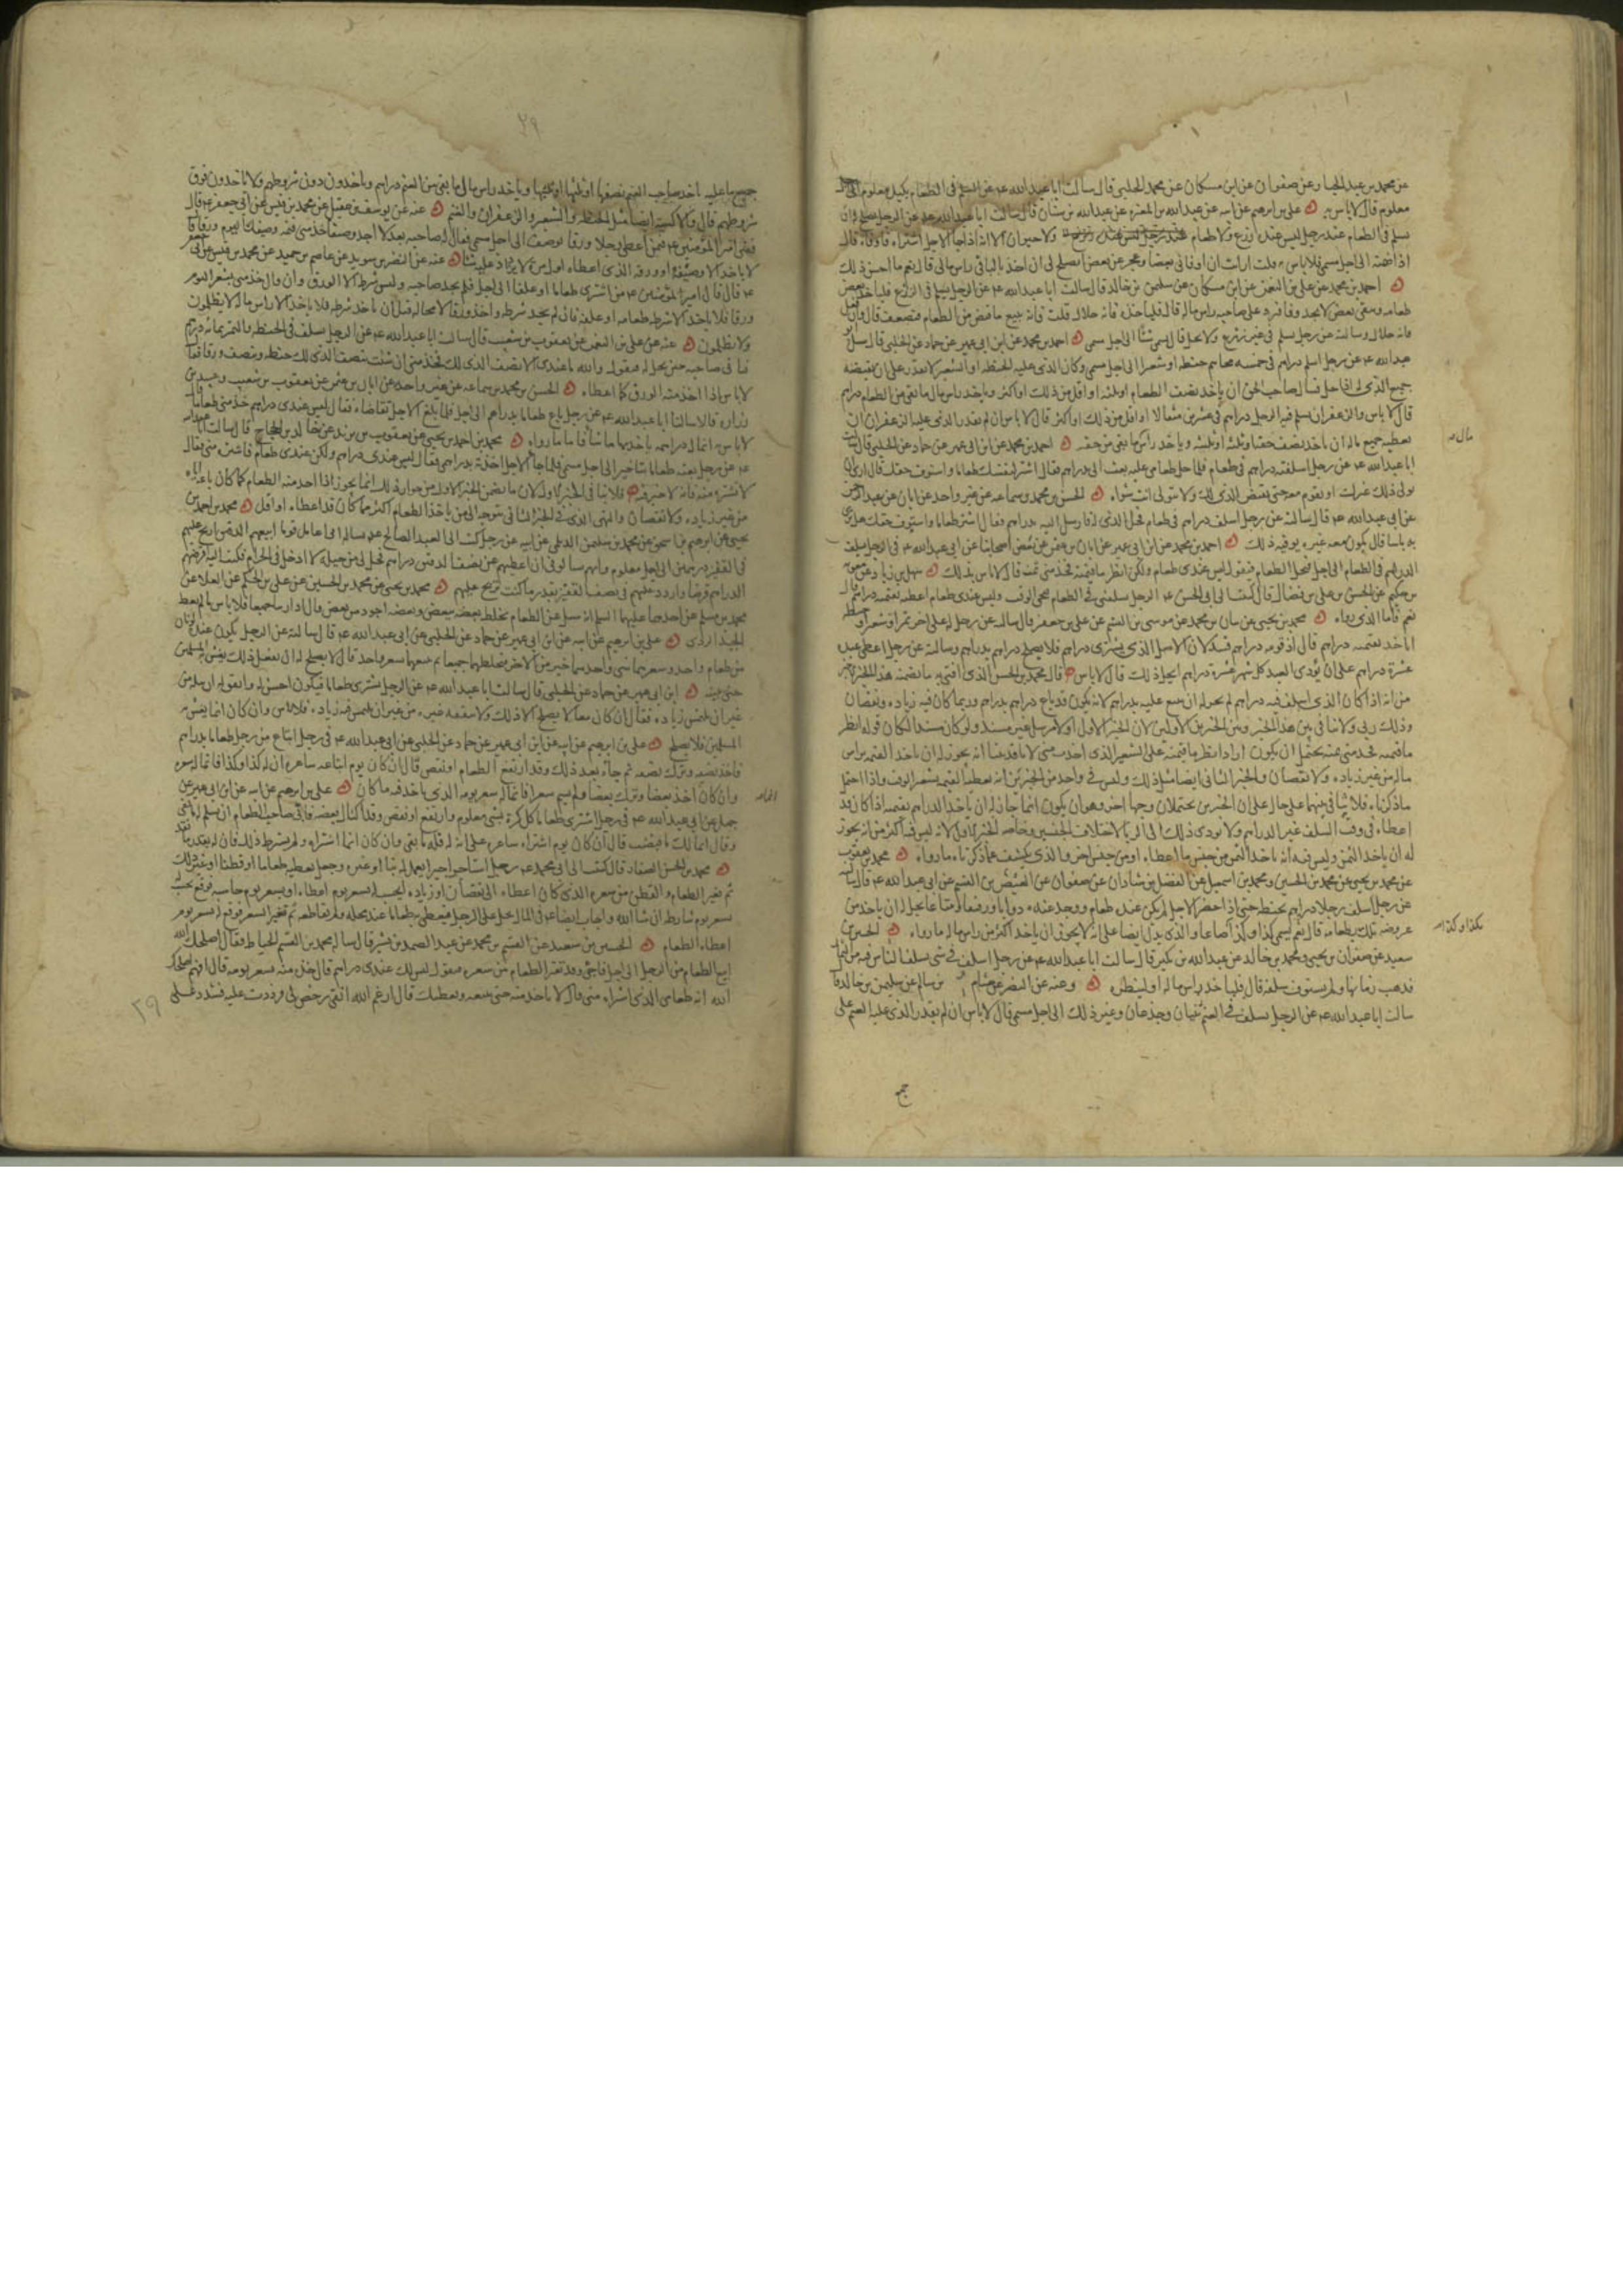 عن محمد بن عبد الجبار عن صفوان عن ابن مسكان عن محمد الحلبي قال سالت ابا عبد الله ع عن السلم فى الطعام بكيل معلوم الى اجل
معلوم قال لا باس به علي بن ابرهيم عن ابيه عن عبد الله بن المغيره عن عبد الله بن سنان قال سالت ابا عبد الله ع عن الرجل يصلح له ان
يسلم فى الطعام عند رجل ليس عنده زرع ولا طعام ولا حيوان الا انه اذا جا الاجل اشتراه فاوفاه قال
اذا ضمنه الى اجل مسمى فلا باس به قلت ارايت ان اوفانى بعضا وعجز عن بعض ايصلح لى ان اخذ بالباقى راس مالى قال نعم ما احسن ذلك
احمد بن محمد عن علي بن النعمن عن ابن مسكان عن سليمن بن خالد قال سالت ابا عبد الله ع عن الرجل يسلم فى الزرع فياخذ بعض
طعامه ويبقى بعض لا يجد وفا فيرد على صاحبه راس ماله قال فلياخذه فانه حلال قلت فانه يبيع ما قبض من الطعام فيضعف قال وان فعل
فانه حلال وسالته عن رجل يسلم فى غير زرع ولا نخل قال يسمى شيا الى اجل مسمى احمد بن محمد عن ابن ابى عمير عن حماد عن الحلبي قال سئل ابو
عبد الله ع عن رجل اسلم دراهم فى خمسه مخاتيم حنطه او شعير الى اجل مسمى وكان الذى عليه الحنطه او الشعير لا يقدر على ان يقبضه
جميع الذى له اذا حل فسال صاحب الحق ان ياخذ نصف الطعام او ثلثه او اقل من ذلك او اكثر وياخذ راس مال ما بقى من الطعام دراهم
قال لا باس والزعفران يسلم فيه الرجل دراهم فى عشرين مثقالا او اقل من ذلك او اكثر قال لا باس ان لم يقدر الذى عليه الزعفران ان
يعطيه جميع ماله ان ياخذ نصف حقه او ثلثه او ثلثيه وياخذ راس مال ما بقى من حقه احمد بن محمد عن ابن ابى عمير عن حماد عن الحلبي قال سالت
ابا عبد الله ع عن رجل اسلفته دراهم فى طعام فلما حل طعامى عليه بعث الى بدراهم فقال اشتر لنفسك طعاما واستوف حقك قال ارى ان
يولى ذلك غيرك او تقوم معه حتى تقبض الذى لك ولا تتولى انت شراه الحسن بن محمد بن سماعه عن غير واحد عن ابان عن عبد الرحمن
عن ابى عبد الله ع قال سالته عن رجل اسلف دراهم فى طعام فحل الذى له فارسل اليه بدراهم فقال اشتر طعاما واستوف حقك هل ترى
به باسا قال يكون معه غيره يوفيه ذلك احمد بن محمد عن ابن ابى عمير عن ابان بن عثمن عن بعض اصحابنا عن ابى عبد الله ع فى الرجل يسلف
الدراهم فى الطعام الى اجل فيحل الطعام فيقول ليس عندى طعام ولكن انظر ما قيمته فخذ منى ثمنه قال لا باس بذلك سهل بن زياد عن معويه
بن حكيم عن الحسن بن علي بن فضال قال كتبت الى ابى الحسن ع الرجل يسلفنى فى الطعام فيجى الوقت وليس عندى طعام اعطيه بقيمته دراهم قال
نعم فاما الذى رواه محمد بن يحيى عن بنان بن محمد عن موسى بن القسم عن علي بن جعفر قال سالته عن رجل له على اخر تمر او شعير او حنطه
اياخذ بقيمته دراهم قال اذا قومه دراهم فسد لان الاصل الذى يشترى دراهم فلا يصلح دراهم بدراهم وسالته عن رجل اعطى عبده
عشرة دراهم على ان يؤدى العبد كل شهر عشرة دراهم ايحل ذلك قال لا باس قال محمد بن الحسن الذى افتى به ما تضمنه هذا الخبر الاخير
من انه اذا كان الذى اسلف فيه دراهم لم يجز له ان يبيع عليه بدراهم لانه يكون قد باع دراهم بدراهم وربما كان فيه زياده ونقصان
وذلك ربا ولا تنافى بين هذا الخبر وبين الخبرين الاولين لان الخبر الاول اولا مرسل غير مسند ولو كان مسندا لكان قوله انظر
ما قيمته فخذ منى ثمنه يحتمل ان يكون اراد انظر ما قيمته على السعر الذى اخذت منى لانا قد بينا انه يجوز له ان ياخذ القيمه براس
ماله من غير زياده ولا نقصان والخبر الثانى ايضا مثل ذلك وليس فى واحد من الخبرين انه يعطيه القيمه بسعر الوقت واذا احتمل
ما ذكرناه فلا تنافى بينهما على حال على ان الخبرين يحتملان وجها اخر وهو ان يكون انما جاز له ان ياخذ الدراهم بقيمته اذا كان قد
اعطاه فى وقت السلف غير الدراهم ولا يؤدى ذلك الى الربا لاختلاف الجنسين
له ان ياخذ الثمن وليس فيه انه ياخذ الثمن من جنس ما اعطاه او من جنس اخر والذى يكشف عما ذكرناه ما رواه محمد بن يعقوب
عن محمد بن يحيى عن محمد بن الحسين ومحمد بن اسمعيل عن الفضل بن شاذان عن صفوان عن العيص بن القسم عن ابى عبد الله ع قال سالته
عن رجل اسلف رجلا دراهم بحنطه حتى اذا حضر الاجل لم يكن عنده طعام ووجد عنده دوابا ورقيقا ومتاعا يحل له ان ياخذ من
عروضه تلك بطعامه قال نعم يسمى كذا وكذا بكذا وكذا صاعا والذى يدل ايضا على انه لا يجوز ان ياخذ اكثر من راس ماله ما رواه الحسين بن
سعيد عن صفوان بن يحيى ومحمد بن خالد عن عبد الله بن بكير قال سالت ابا عبد الله ع عن رجل اسلف فى شى يسلف الناس فيه من الثمار
فذهب زمانها ولم يستوف سلفه قال فلياخذ راس ماله او لينظره وعنه عن النضر عن هشام بن سالم عن سليمن بن خالد قال
سالت ابا عبد الله ع عن الرجل يسلف فى الغنم ثنيان وجذعان وغير ذلك الى اجل مسمى قال لا باس ان لم يقدر الذى عليه الغنم على
جميع
٢٩
جميع ما عليه ياخذ صاحب الغنم نصفها او ثلثها او ثلثيها وياخذ راس مال ما بقى من الغنم دراهم وياخذون دون شروطهم ولا ياخذون فوق
شروطهم قال والاكسيه ايضا مثل الحنطه والشعير والزعفران والغنم عنه عن يوسف بن عقيل عن محمد بن قيس عن ابى جعفر ع قال
قضى امير المؤمنين ع فيمن اعطى رجلا ورقا بوصيف الى اجل مسمى فقال له صاحبه بعد لا اجد وصيفا خذ منى قيمه وصيفك اليوم ورقا قال
لا ياخذ الا وصيفه او ورقه الذى اعطاه اول مره لا يزداد عليه شيا عنه عن النضر بن سويد عن عاصم بن حميد عن محمد بن قيس عن ابى جعفر
ع قال قال امير المؤمنين ع من اشترى طعاما او علفا الى اجل فلم يجد صاحبه وليس شرطه الا الورق وان قال خذ منى بسعر اليوم
ورقا فلا ياخذ الا شرطه طعامه او علفه فان لم يجد شرطه واخذ ورقا لا محاله قبل ان ياخذ شرطه فلا ياخذ الا راس ماله لا يظلمون
ولا يظلمون عنه عن علي بن النعمن عن يعقوب بن شعيب قال سالت ابا عبد الله ع عن الرجل يسلف فى الحنطه والتمر بمائه درهم
فياتى صاحبه حين يحل له فيقول والله ما عندى الا نصف الذى لك فخذ منى ان شئت بنصف الذى لك حنطه وبنصف ورقا فقال
لا باس اذا اخذ منه الورق كما اعطاه الحسن بن محمد بن سماعه عن غير واحد عن ابان بن عثمن عن يعقوب بن شعيب وعبيد بن
زراره قالا سالنا ابا عبد الله ع عن رجل باع طعاما بدراهم الى اجل فلما بلغ الاجل تقاضاه فقال ليس عندى دراهم خذ منى طعاما قال
لا باس به انما له دراهمه ياخذ بها ما شا فاما ما رواه محمد بن احمد بن يحيى عن يعقوب بن يزيد عن خالد بن الحجاج قال سالت ابا عبد الله
ع عن رجل بعته طعاما بتاخير الى اجل مسمى فلما جا الاجل اخذته بدراهمى فقال ليس عندى دراهم ولكن عندى طعام فاشتره منى فقال
لا تشتره منه فانه لا خير فيه فلا ينافى الخبر الاول لان ما تضمن الخبر الاول من جواز ذلك انما يجوز اذا اخذ منه الطعام كما كان باعه اياه
من غير زياده ولا نقصان والنهى الذى فى الخبر الثانى متوجه الى من ياخذ الطعام اكثر مما كان قد اعطاه او اقل محمد بن احمد بن
يحيى عن ابرهيم بن اسحق عن محمد بن سليمن الديلمى عن ابيه عن رجل كتب الى العبد الصالح ع يساله انى اعامل قوما ابيعهم الدقيق اربح عليهم
فى القفيز درهمين الى اجل معلوم وانهم سالونى ان اعطيهم عن نصف الدقيق دراهم فهل لى من حيله لا ادخل فى الحرام فكتب اليه اقرضهم
الدراهم قرضا وازدد عليهم فى نصف القفيز بقدر ما كنت تربح عليهم محمد بن يحيى عن محمد بن الحسين عن علي بن الحكم عن العلا عن
محمد بن مسلم عن احدهما عليهما السلم انه سئل عن الطعام يخلط بعضه ببعض وبعضه اجود من بعض قال اذا رئيا جميعا فلا باس ما لم يغط
الجيد الردى علي بن ابرهيم عن ابيه عن ابن ابى عمير عن حماد عن الحلبي عن ابى عبد الله ع قال سالته عن الرجل يكون عنده لونان
من طعام واحد وسعرهما شتى واحدهما خير من الاخر فيخلطهما جميعا ثم يبيعهما بسعر واحد قال لا يصلح له ان يفعل ذلك يغش به المسلمين
حتى يبينه ابن ابى عمير عن حماد عن الحلبي قال سالت ابا عبد الله ع عن الرجل يشترى طعاما فيكون احسن له وانفق له ان يبله من
غير ان يلتمس زياده فقال ان كان بيعا لا يصلحه الا ذلك ولا ينفقه غيره من غير ان يلتمس فيه زياده فلا باس وان كان انما يغش به
المسلمين فلا يصلح علي بن ابرهيم عن ابيه عن ابن ابى عمير عن حماد عن الحلبي عن ابى عبد الله ع فى رجل ابتاع من رجل طعاما بدراهم
فاخذ نصفه وترك نصفه ثم جاه بعد ذلك وقد ارتفع الطعام او نقص قال ان كان يوم ابتاعه ساعره ان له كذا وكذا فانما له سعره
وان كان اخذ بعضا وترك بعضا ولم يسم سعرا فانما له سعر يومه الذى ياخذ فيه ما كان علي بن ابرهيم عن ابيه عن ابن ابى عمير عن
جميل عن ابى عبد الله ع فى رجل اشترى طعاما كل كره بشى معلوم وارتفع او نقص وقد اكتال بعضه فابى صاحب الطعام ان يسلم له ما بقى
وقال انما لك ما قبضت قال ان كان يوم اشتراه ساعره على انه له فله ما بقى وان كان انما اشتراه ولم يشترط ذلك فان له بقدر ما نقد
محمد بن الحسن الصفار قال كتبت الى ابى محمد ع رجل استاجر اجيرا يعمل له بنا او غيره وجعل يعطيه طعاما او قطنا او غير ذلك
ثم تغير الطعام والقطن من سعره الذى كان اعطاه الى نقصان او زياده ايحسب له بسعر يوم اعطاه او بسعر يوم حاسبه فوقع يحسب له
بسعر يوم شارطه ان شا الله واجاب ايضا ع فى المال يحل على الرجل فيعطى به طعاما عند محله ولم يقاطعه ثم تغير السعر فوقع له سعر يوم
اعطاه الطعام الحسين بن سعيد عن القسم بن محمد عن عبد الصمد بن بشير قال ساله محمد بن القسم الحناط فقال اصلحك الله
ابيع الطعام من الرجل الى اجل فاجى وقد تغير الطعام من سعره فيقول ليس لك عندى دراهم قال خذ منه بسعر يومه قال افهم اصلحك
الله انه طعامى الذى اشتراه منى قال لا تاخذ منه حتى يبيعه ويعطيك قال ارغم الله انفى رخص لى فرددت عليه فشدد على
٢٩